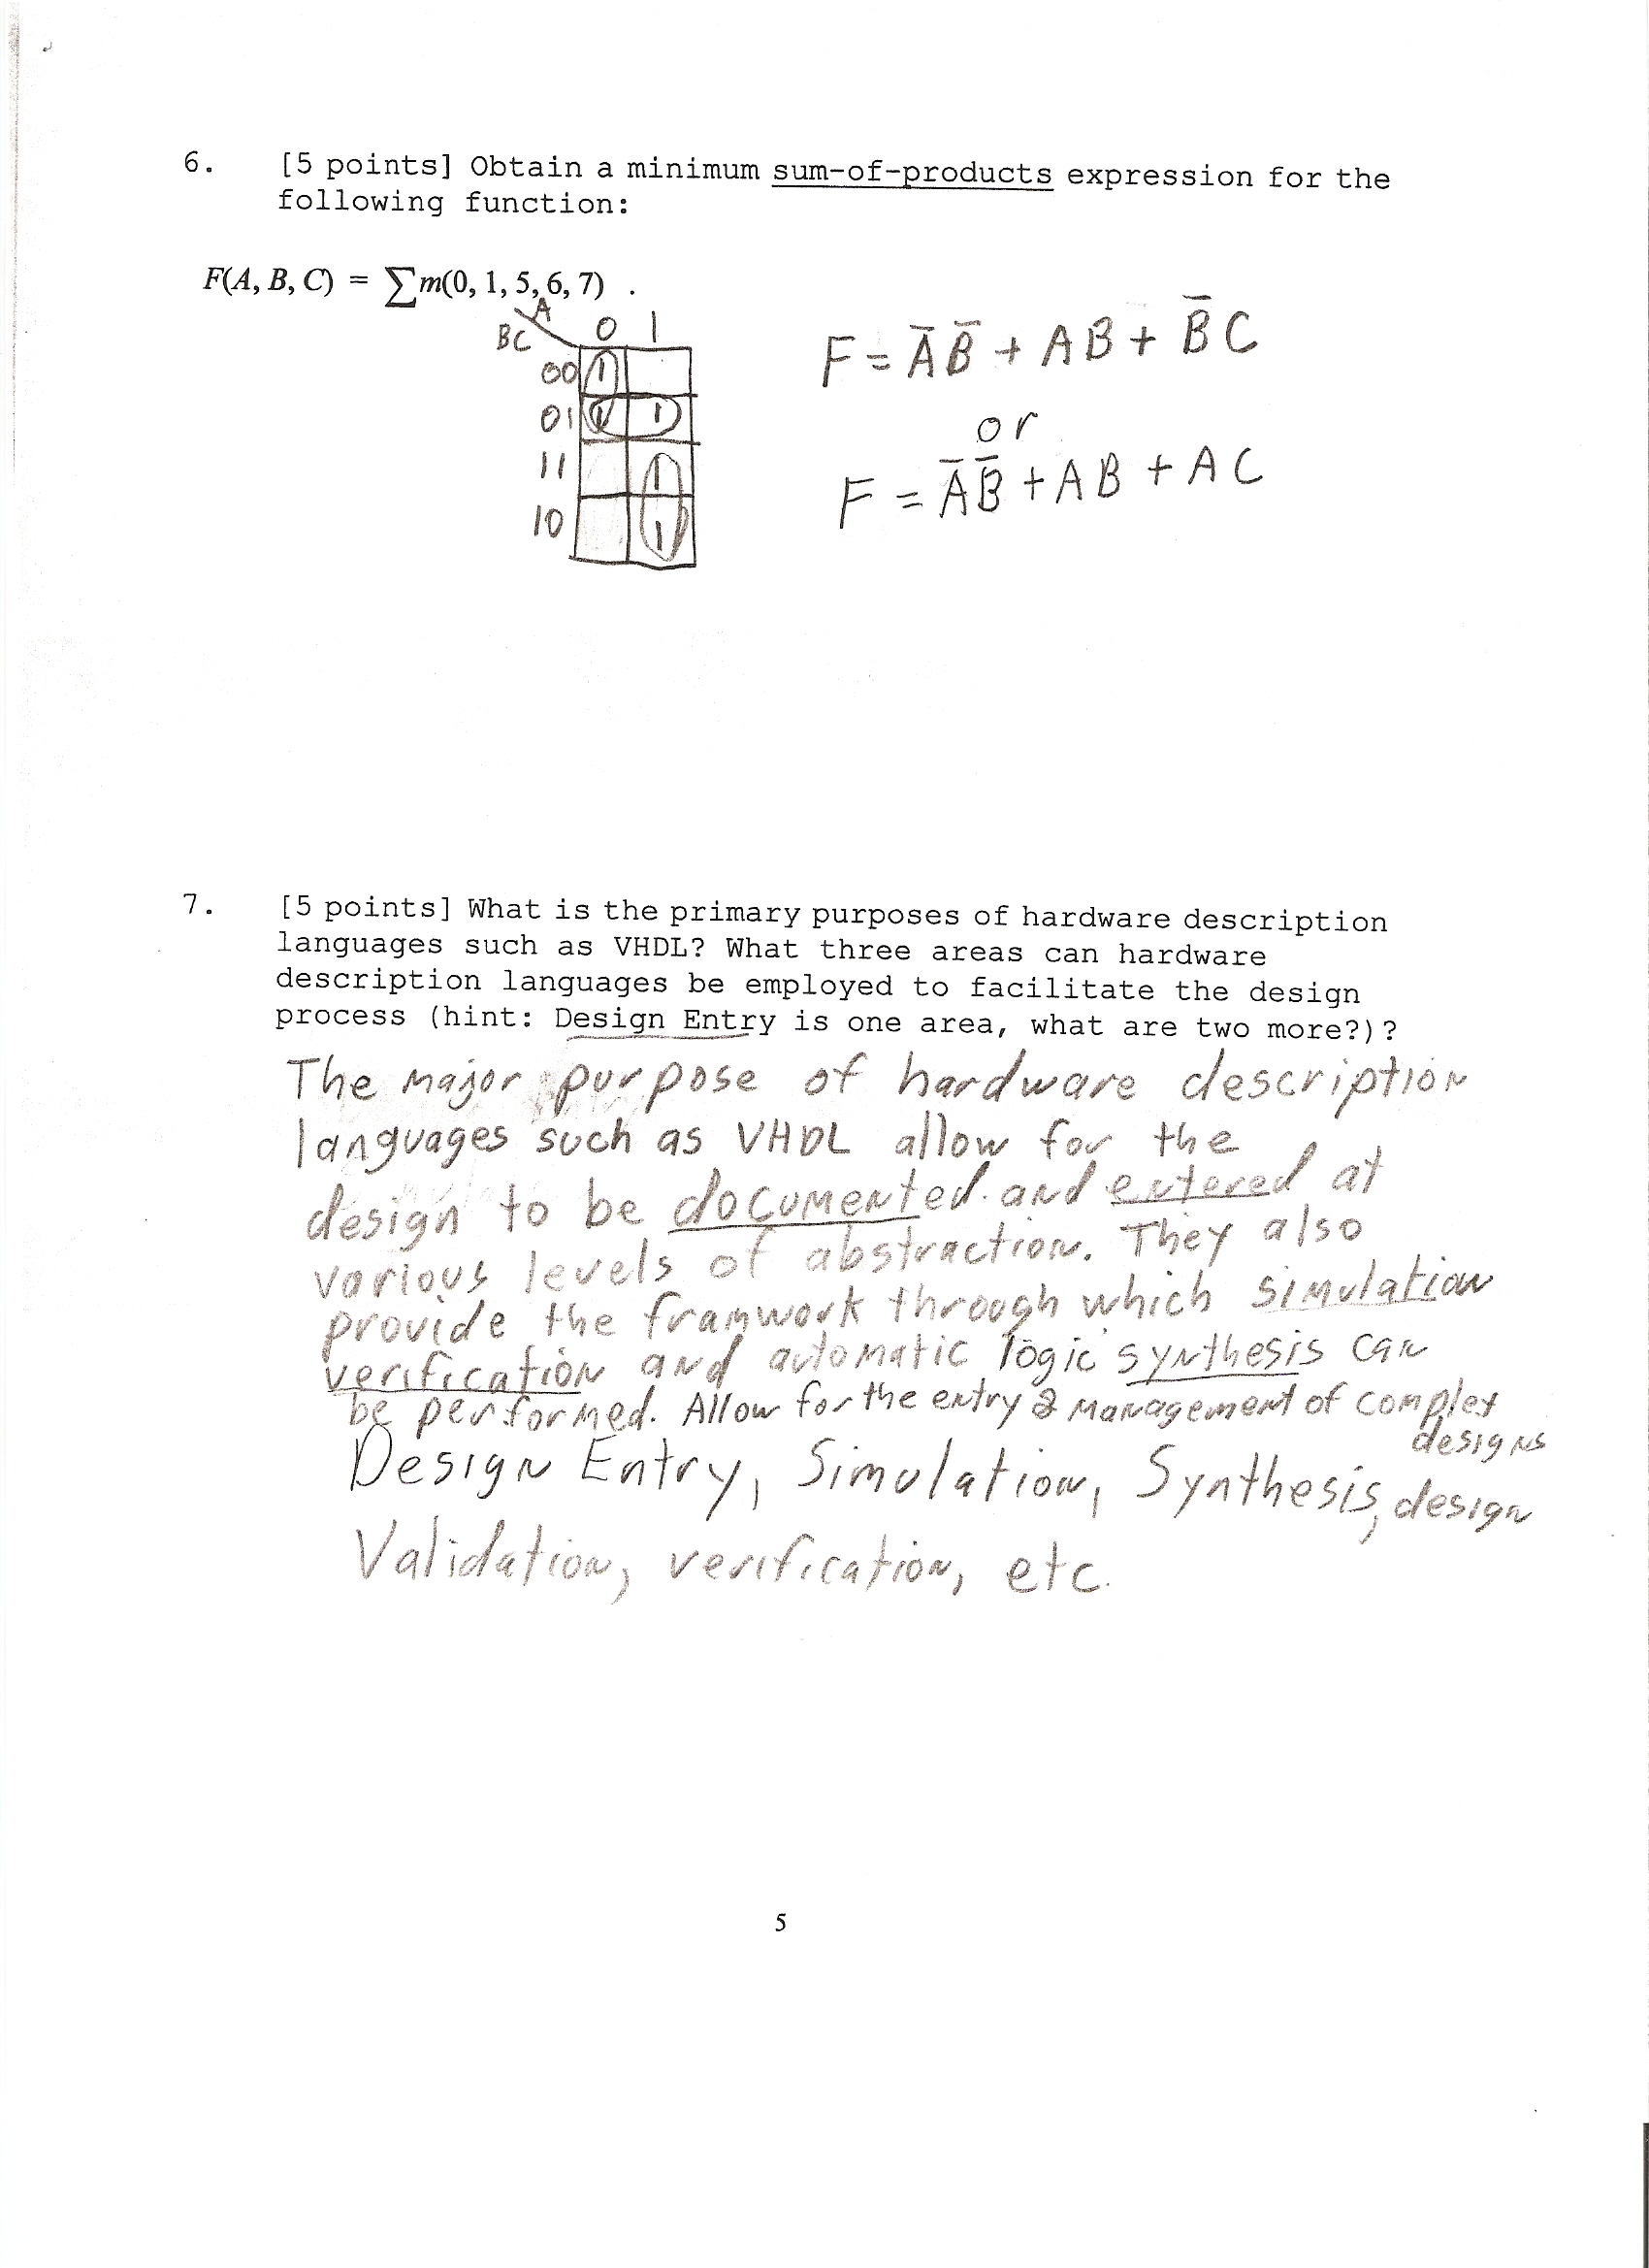 6. [5 points] Obtain a minimum sum-of-products expression for the
following function:
F(A, B, C) = ∑m(0, 1, 5, 6, 7) .
A
BC 0 1
00 1
01 1 1
11 1
10 1
F = A̅ B̅ + A B + B̅ C
or
F = A̅ B̅ + A B + A C
7. [5 points] What is the primary purposes of hardware description
languages such as VHDL? What three areas can hardware
description languages be employed to facilitate the design
process (hint: Design Entry is one area, what are two more?)?
The major purpose of hardware description
languages such as VHDL allow for the
design to be documented and entered at
various levels of abstraction. They also
provide the framwork through which simulation
verification and automatic logic synthesis can
be performed. Allow for the entry & management of complex
designs
Design Entry, Simulation, Synthesis, design
Validation, verification, etc.
5